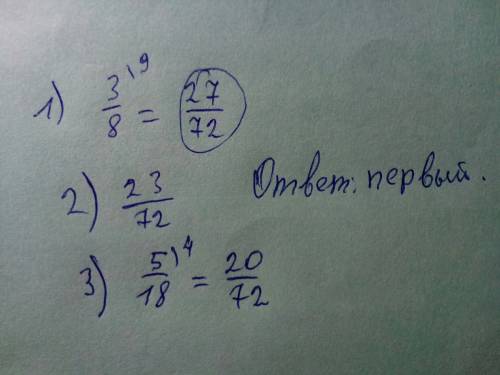 1) 3/8 \9 = 27/72
2) 23/72
Ответ: первый.
3) 5/18 \4 = 20/72